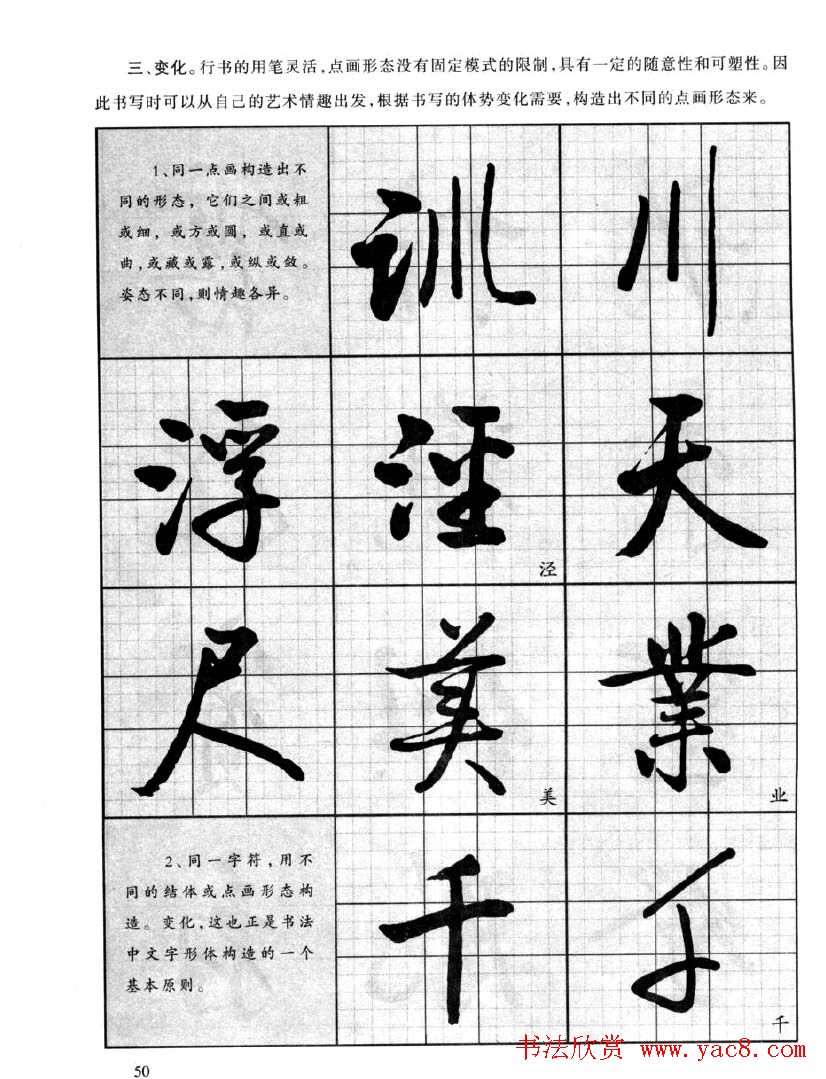 三、变化。行书的用笔灵活,点画形态没有固定模式的限制,具有一定的随意性和可塑性。因
此书写时可以从自己的艺术情趣出发,根据书写的体势变化需要,构造出不同的点画形态来。
1、同一点画构造出不
同的形态，它们之间或粗
或细，或方或圆，或直或
曲,或藏或露,或纵或敛。
姿态不同,则情趣各异。
训 川
浮 泾 天
泾
尺 美 業
美 业
2、同一字符，用不
同的结体或点画形态构
造。变化,这也正是书法
中文字形体构造的一个
基本原则。
千 千
千
书法欣赏 www.yac8.com
50